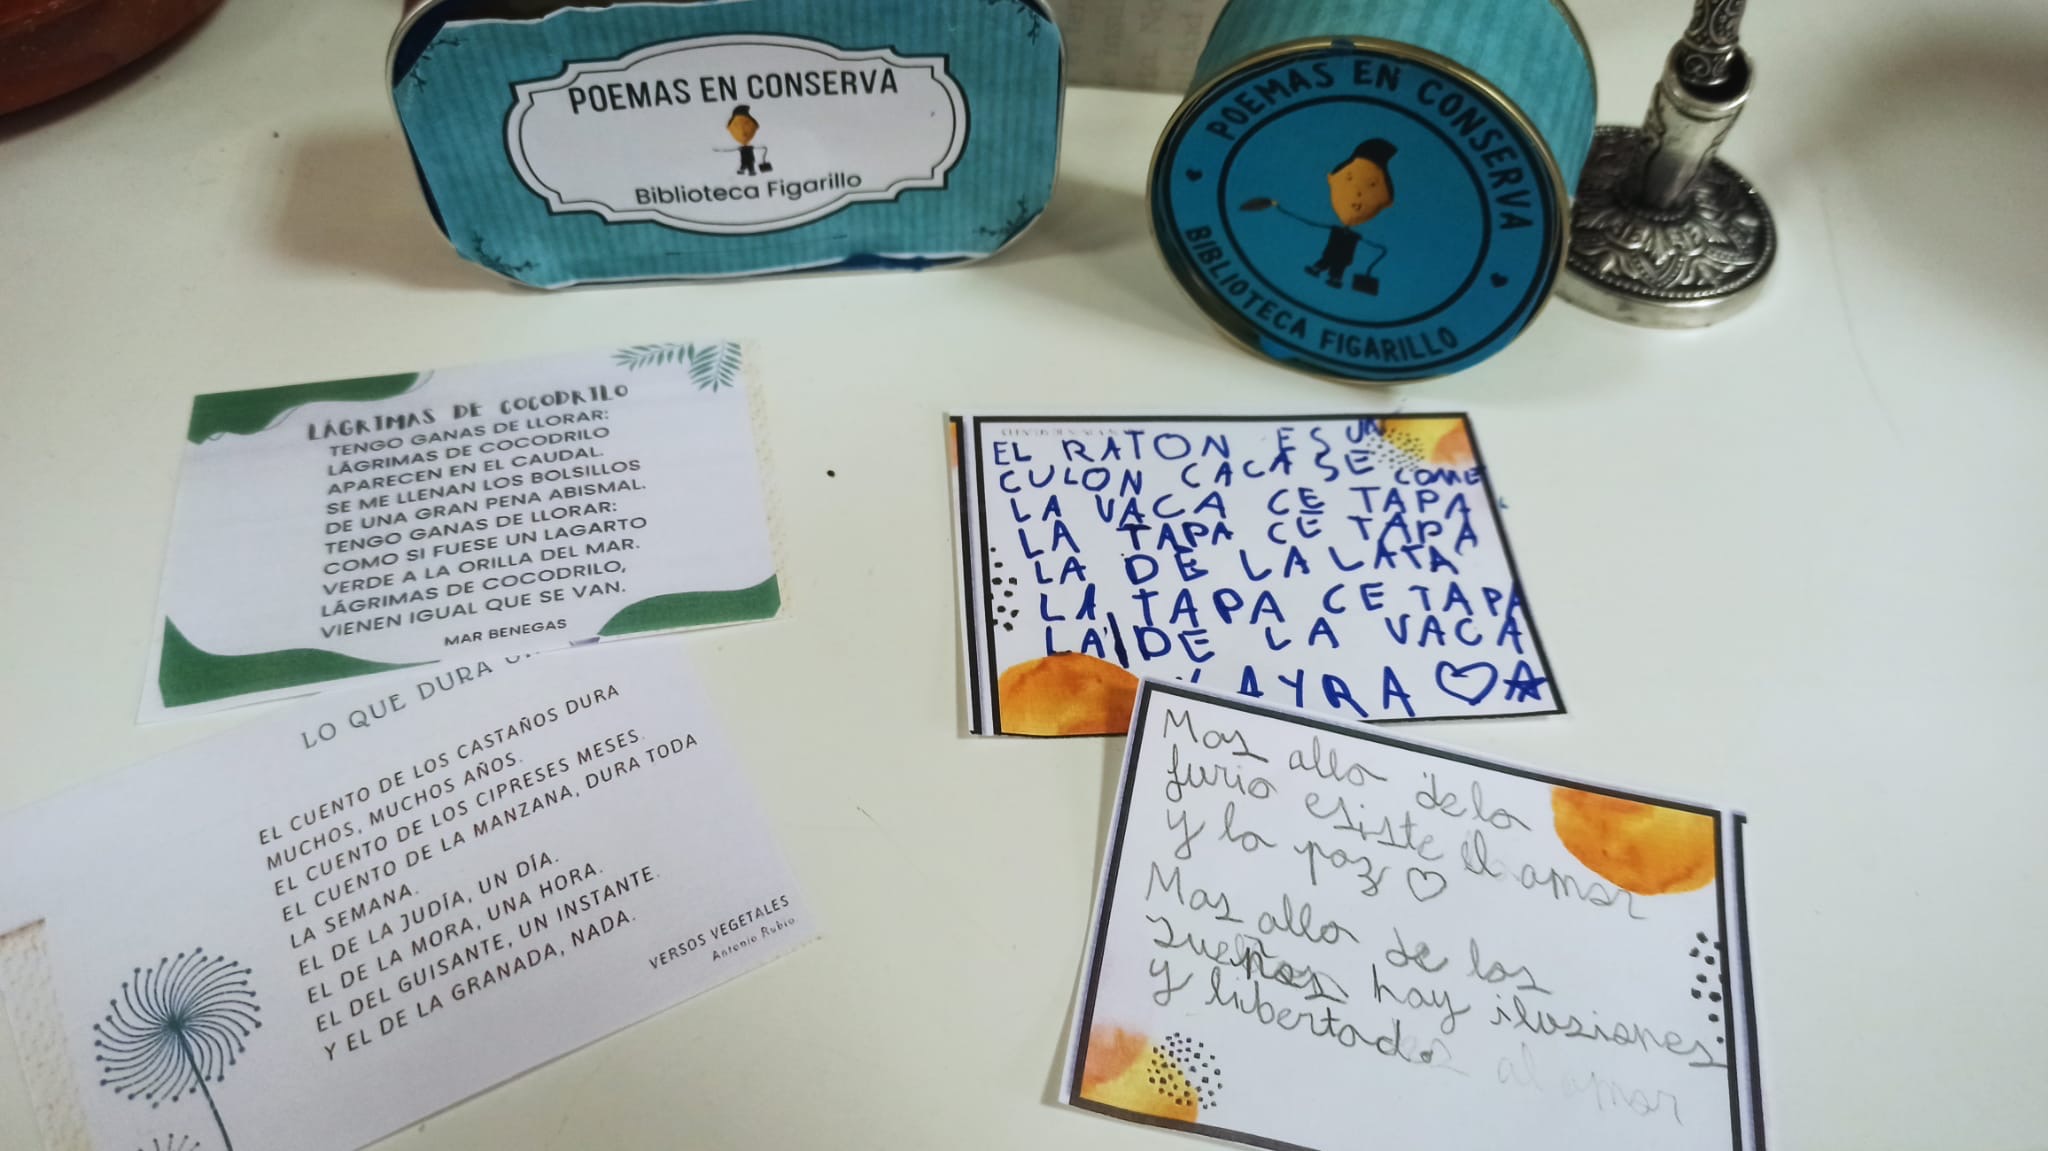 POEMAS EN CONSERVA
Biblioteca Figarillo
POEMAS EN CONSERVA
BIBLIOTECA FIGARILLO
LÁGRIMAS DE COCODRILO
TENGO GANAS DE LLORAR:
LÁGRIMAS DE COCODRILO
APARECEN EN EL CAUDAL.
SE ME LLENAN LOS BOLSILLOS
DE UNA GRAN PENA ABISMAL.
TENGO GANAS DE LLORAR:
COMO SI FUESE UN LAGARTO
VERDE A LA ORILLA DEL MAR.
LÁGRIMAS DE COCODRILO,
VIENEN IGUAL QUE SE VAN.
MAR BENEGAS
LO QUE DURA
EL CUENTO DE LOS CASTAÑOS DURA
MUCHOS, MUCHOS AÑOS.
EL CUENTO DE LOS CIPRESES MESES.
EL CUENTO DE LA MANZANA, DURA TODA
LA SEMANA.
EL DE LA JUDÍA, UN DÍA.
EL DE LA MORA, UNA HORA.
EL DEL GUISANTE, UN INSTANTE.
Y EL DE LA GRANADA, NADA.
VERSOS VEGETALES
Antonio Rubio
EL RATON ES UN
CULON CACA SE COME
LA VACA CE TAPA
LA TAPA CE TAPA
LA DE LA LATA
LA TAPA CE TAPA
LA DE LA VACA
LAYRA
Mas alla dela
furia esiste el amor
y la paz
Mas alla de los
sueños hay ilusiones
y libertad
al amor